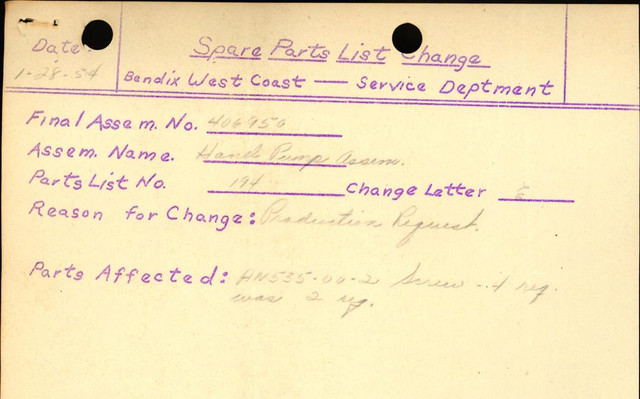 Date:
1-28-54
Spare Parts List Change
Bendix West Coast — Service Deptment
Final Assem. No. 406950
Assem. Name. Hand Pump Assem.
Parts List No. 194 Change Letter E
Reason for Change: Production Request.
Parts Affected: AN535-00-2 Screw - 4 req.
was 2 req.